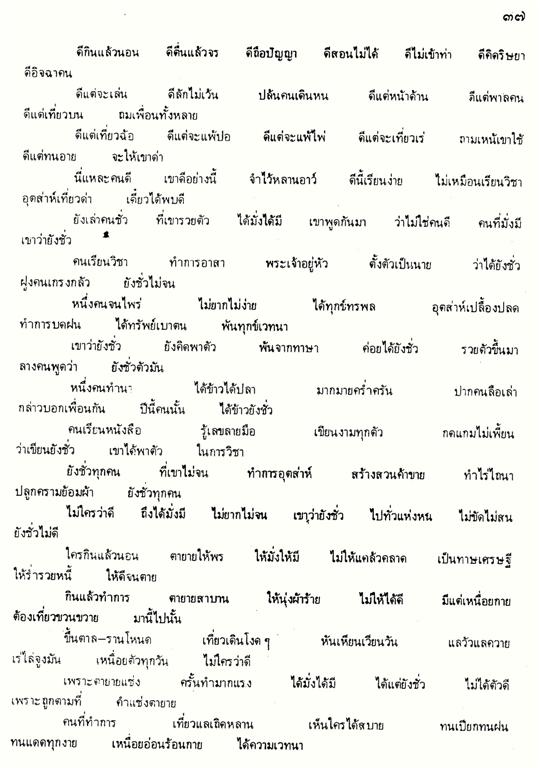 ๓๗
ดีกินแล้วนอน ดีตื่นแล้วจร ดีถือปัญญา ดีสอนไม่ได้ ดีไม่เข้าท่า ดีคิดริษยา
ดีอิจฉาคน
ดีแต่จะเล่น ดีลักไม่เว้น ปล้นคนเดินหน ดีแต่หน้าด้าน ดีแต่พาลคน
ดีแต่เที่ยวบน ถมเพื่อนทั้งหลาย
ดีแต่เที่ยวฉ้อ ดีแต่จะแพ้ปอ ดีแต่จะแพ้ไพ่ ดีแต่จะเที่ยวเร่ ถามเหน้เขาใช้
ดีแต่ทนอาย จะให้เขาด่า
นี่แหละคนดี เขาดีอย่างนี้ จำไว้หลานอาว์ ดีนี้เรียนง่าย ไม่เหมือนเรียนวิชา
อุตส่าห์เที่ยวด่า เดี๋ยวได้พบดี
ยังเล่าคนชั่ว ที่เขารวยตัว ได้มั่งได้มี เขาพูดกันมา ว่าไม่ใช่คนดี คนที่มั่งมี
เขาว่ายังชั่ว
คนเรียนวิชา ทำการอาสา พระเจ้าอยู่หัว ตั้งตัวเป็นนาย ว่าได้ยังชั่ว
ฝูงคนเกรงกลัว ยังชั่วไม่จน
หนึ่งคนจนไพร่ ไม่ยากไม่ง่าย ได้ทุกข์ทรพล อุตส่าห์เปลื้องปลด
ทำการบดฝน ได้ทรัพย์เบาตน พ้นทุกข์เวทนา
เขาว่ายังชั่ว ยังคิดพาตัว พ้นจากทาษา ค่อยได้ยังชั่ว รวยตัวขึ้นมา
ลางคนพูดว่า ยังชั่วตัวมัน
หนึ่งคนทำนา ได้ข้าวได้ปลา มากมายคร่ำครัน ปากคนลือเล่า
กล่าวบอกเพื่อนกัน ปีนี้คนนั้น ได้ข้าวยังชั่ว
คนเรียนหนังสือ รู้เลขลายมือ เขียนงามทุกตัว กดแกมไม่เพี้ยน
ว่าเขียนยังชั่ว เขาได้พาตัว ในการวิชา
ยังชั่วทุกคน ที่เขาไม่จน ทำการอุตส่าห์ สร้างสวนค้าขาย ทำไร่ไถนา
ปลูกครามย้อมผ้า ยังชั่วทุกคน
ไม่ใครว่าดี ถึงได้มั่งมี ไม่ยากไม่จน เขาว่ายังชั่ว ไปทั่วแห่งหน ไม่ขัดไม่สน
ยังชั่วไม่ดี
ใครกินแล้วนอน ตายายให้พร ให้มั่งให้มี ไม่ให้แคล้วคลาด เป็นทาษเศรษฐี
ให้ร่ำรวยหนี้ ให้ดีจนตาย
กินแล้วทำการ ตายายสาบาน ให้นุ่งผ้าร้าย ไม่ให้ได้ดี มีแต่เหนื่อยกาย
ต้องเที่ยวขวนขวาย มานี้ไปนั้น
ขึ้นตาล–รานโหนด เที่ยวเดินโงด ๆ หันเหียนเวียนวัน แลวัวแลควาย
เร่ไล่จูงมัน เหนื่อยตัวทุกวัน ไม่ใครว่าดี
เพราะตายายแช่ง ครั้นทำมากแรง ได้มั่งได้มี ได้แต่ยังชั่ว ไม่ได้ตัวดี
เพราะถูกตามที่ คำแช่งตายาย
คนที่ทำการ เที่ยวแลเถิดหลาน เห็นใครได้สบาย ทนเปียกทนฝน
ทนแดดทุกงาย เหนื่อยอ่อนร้อนกาย ได้ความเวทนา